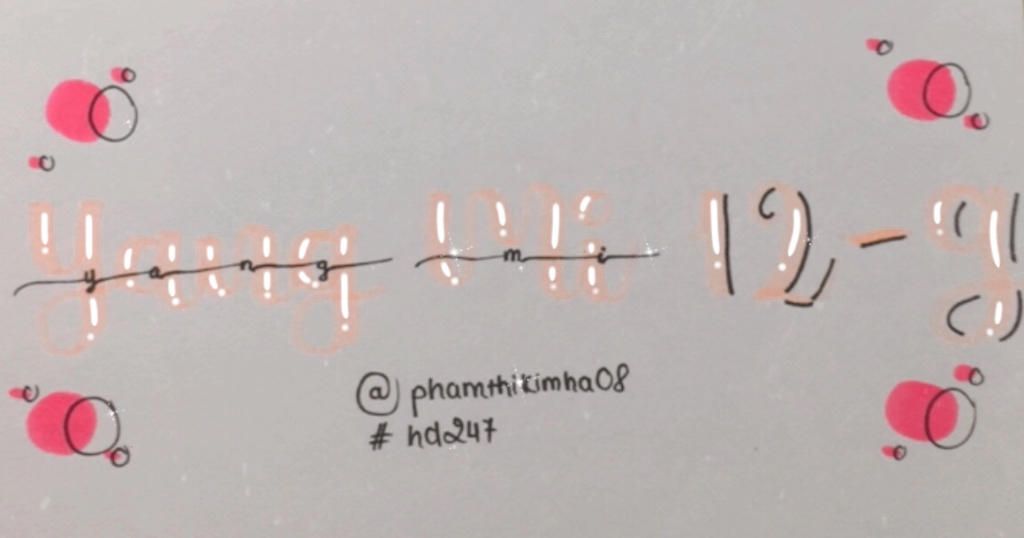 Yang Mi 12-9
yang mi
@phamthikimha08
# hd247